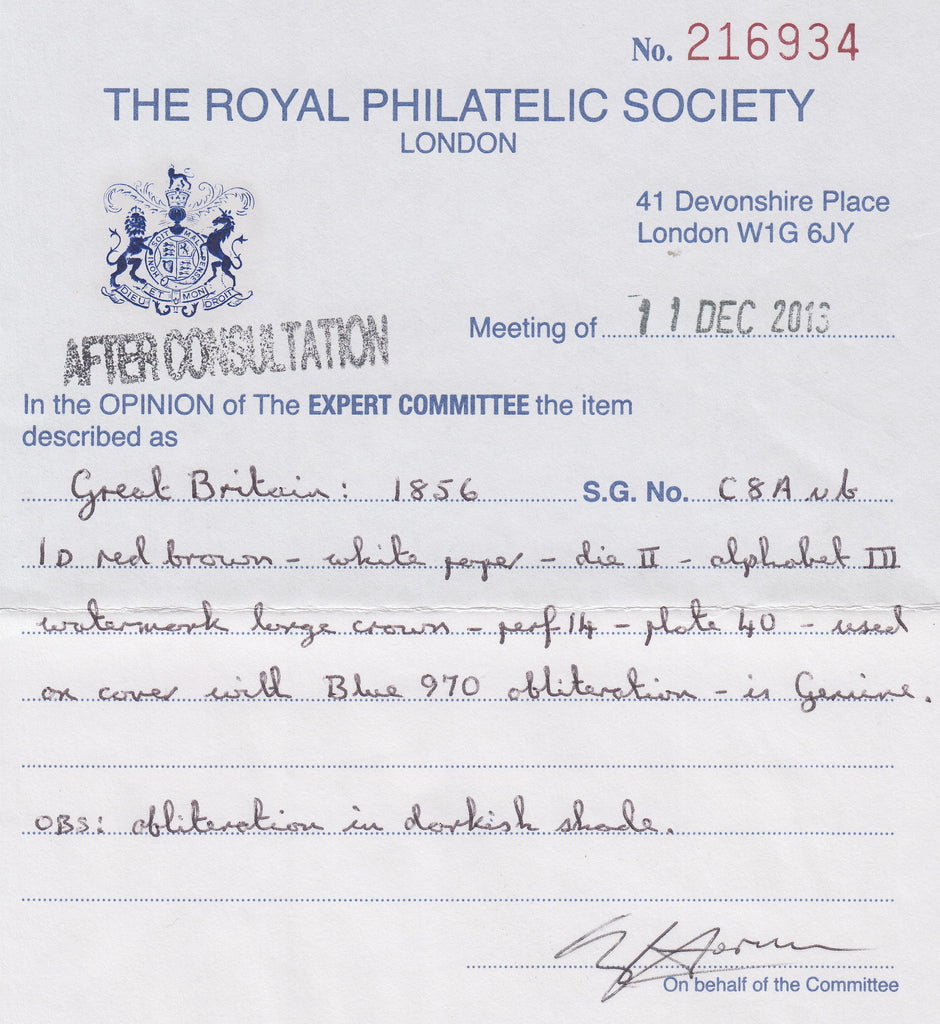 No. 216934
THE ROYAL PHILATELIC SOCIETY
LONDON
41 Devonshire Place
London W1G 6JY
HONI SOIT MAL PENSE
DIEU ET MON DROIT
AFTER CONSULTATION
Meeting of 11 DEC 2013
In the OPINION of The EXPERT COMMITTEE the item
described as
Great Britain: 1856 S.G. No. C8A ub
1D red brown - white paper - die II - alphabet III
watermark large crown - perf 14 - plate 40 - used
on cover with Blue 970 obliteration - is Genuine.
OBS: obliteration in darkish shade.
On behalf of the Committee